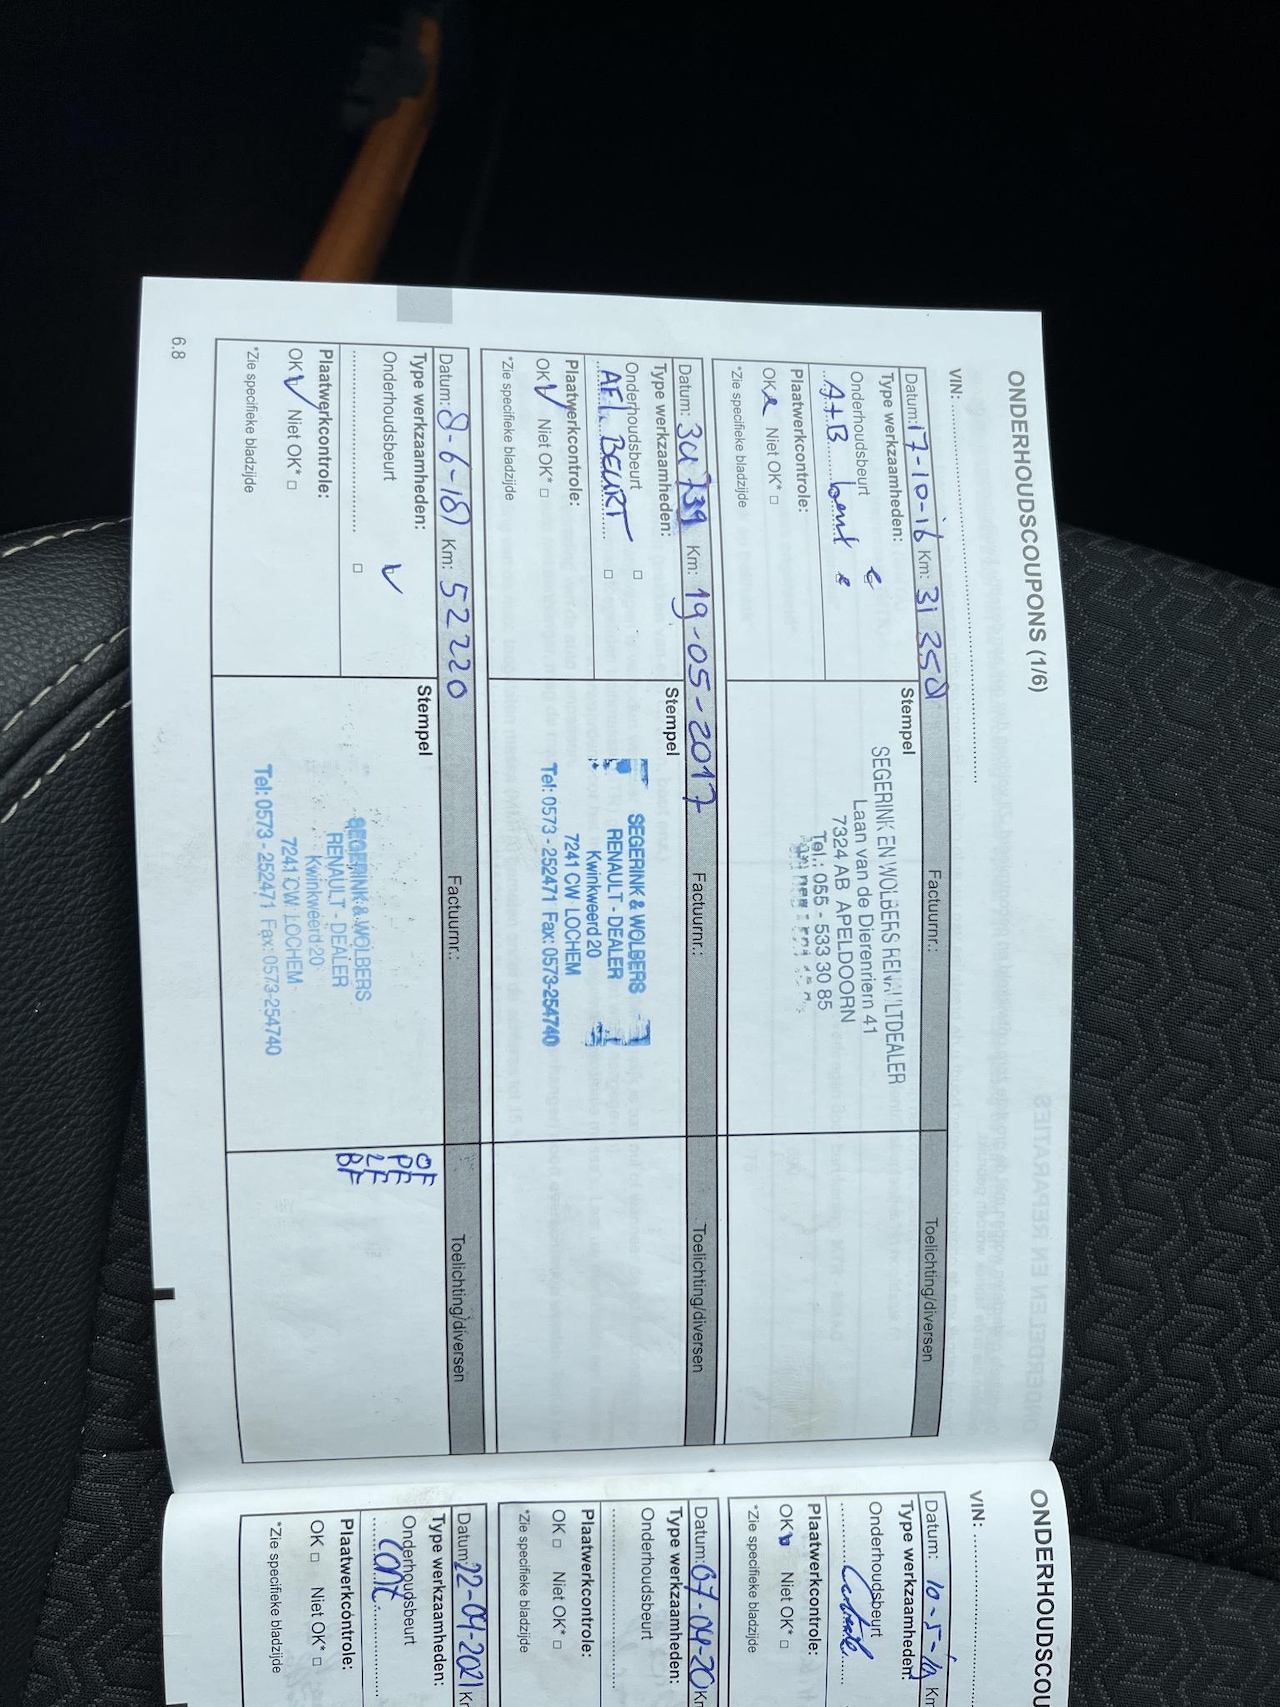 ONDERHOUDSCOUPONS (1/6)
VIN: ..............................
Datum: 17-10-16 Km: 31 350 Factuurnr.: Toelichting/diversen
Type werkzaamheden: Stempel
Onderhoudsbeurt
A+B beurt
Plaatwerkcontrole:
OK Niet OK* □
*Zie specifieke bladzijde
SEGERINK EN WOLBERS RENAULTDEALER
Laan van de Dierenriem 41
7324 AB APELDOORN
Tel.: 055 - 533 30 85
Datum: 34739 Km: 19-05-2017 Factuurnr.: Toelichting/diversen
Type werkzaamheden: Stempel
Onderhoudsbeurt □
AFL. BEURT □
Plaatwerkcontrole:
OK Niet OK* □
*Zie specifieke bladzijde
SEGERINK & WOLBERS
RENAULT - DEALER
Kwinkweerd 20
7241 CW LOCHEM
Tel: 0573 - 252471 Fax: 0573-254740
Datum: 8-6-18 Km: 52220 Factuurnr.: Toelichting/diversen
Type werkzaamheden: Stempel
Onderhoudsbeurt
.............................. □
Plaatwerkcontrole:
OK Niet OK* □
*Zie specifieke bladzijde
SEGERINK & WOLBERS
RENAULT - DEALER
Kwinkweerd 20
7241 CW LOCHEM
Tel: 0573 - 252471 Fax: 0573-254740
OF
PF
LF
BF
6.8
ONDERHOUDSCOU
VIN: ..............................
Datum: 10-5-19 Km
Type werkzaamheden:
Onderhoudsbeurt
Plaatwerkcontrole:
OK Niet OK* □
*Zie specifieke bladzijde
Datum: 07-04-20 Km
Type werkzaamheden:
Onderhoudsbeurt
..............................
Plaatwerkcontrole:
OK □ Niet OK* □
*Zie specifieke bladzijde
Datum: 22-04-2021 Km
Type werkzaamheden:
Onderhoudsbeurt
Plaatwerkcontrole:
OK □ Niet OK* □
*Zie specifieke bladzijde